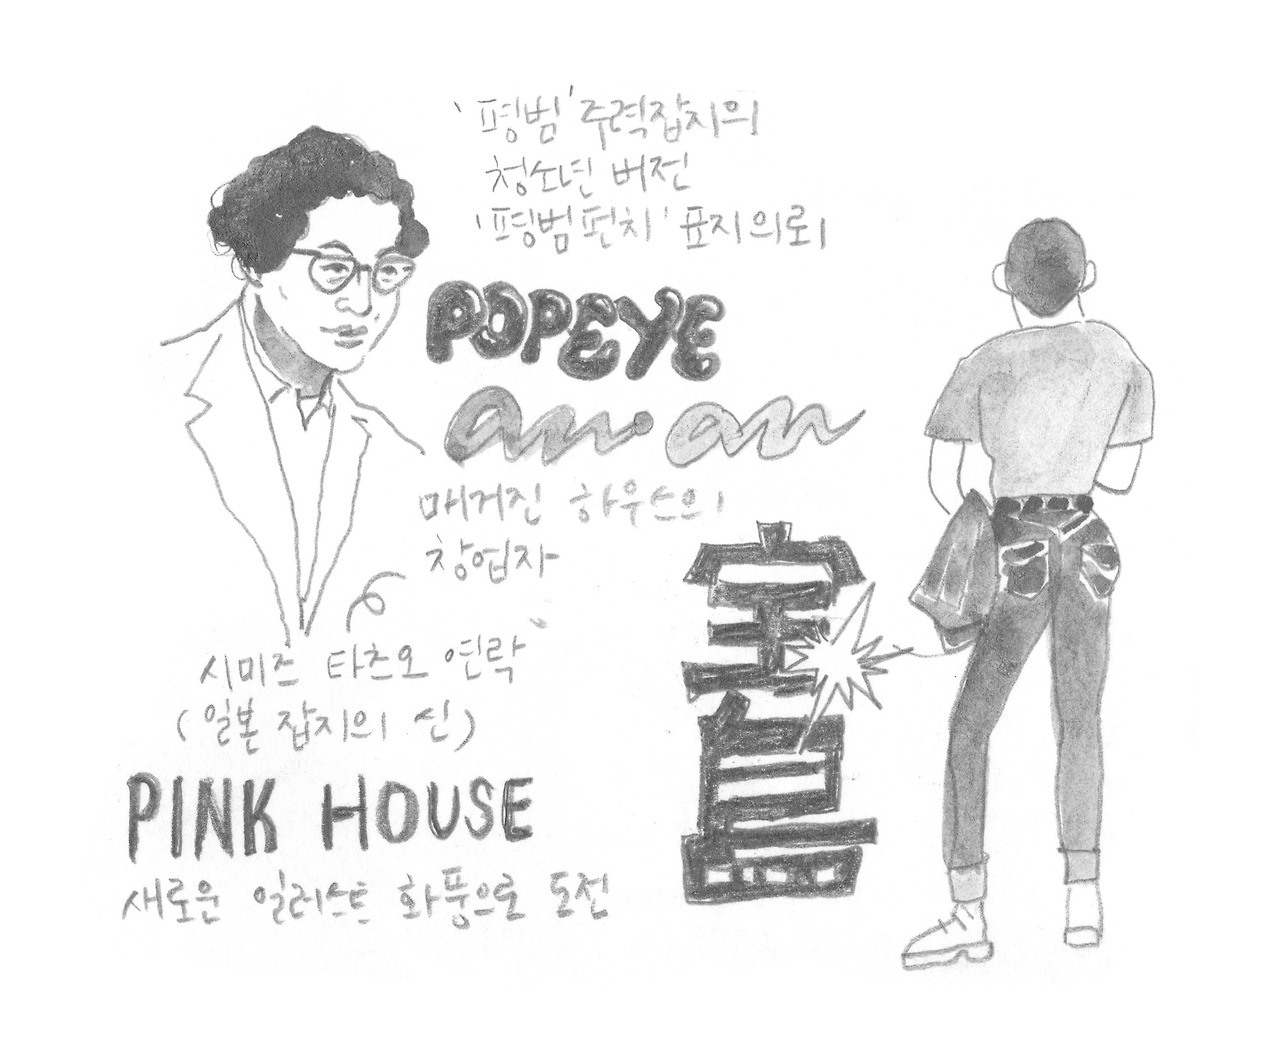 '평범' 주력잡지의
청소년 버전
'평범펀치' 표지의뢰
POPEYE
an·an
매거진 하우스의
창업자
시미즈 타츠오 연락
(일본 잡지의 신)
PINK HOUSE
새로운 일러스트 화풍으로 도전
宝島